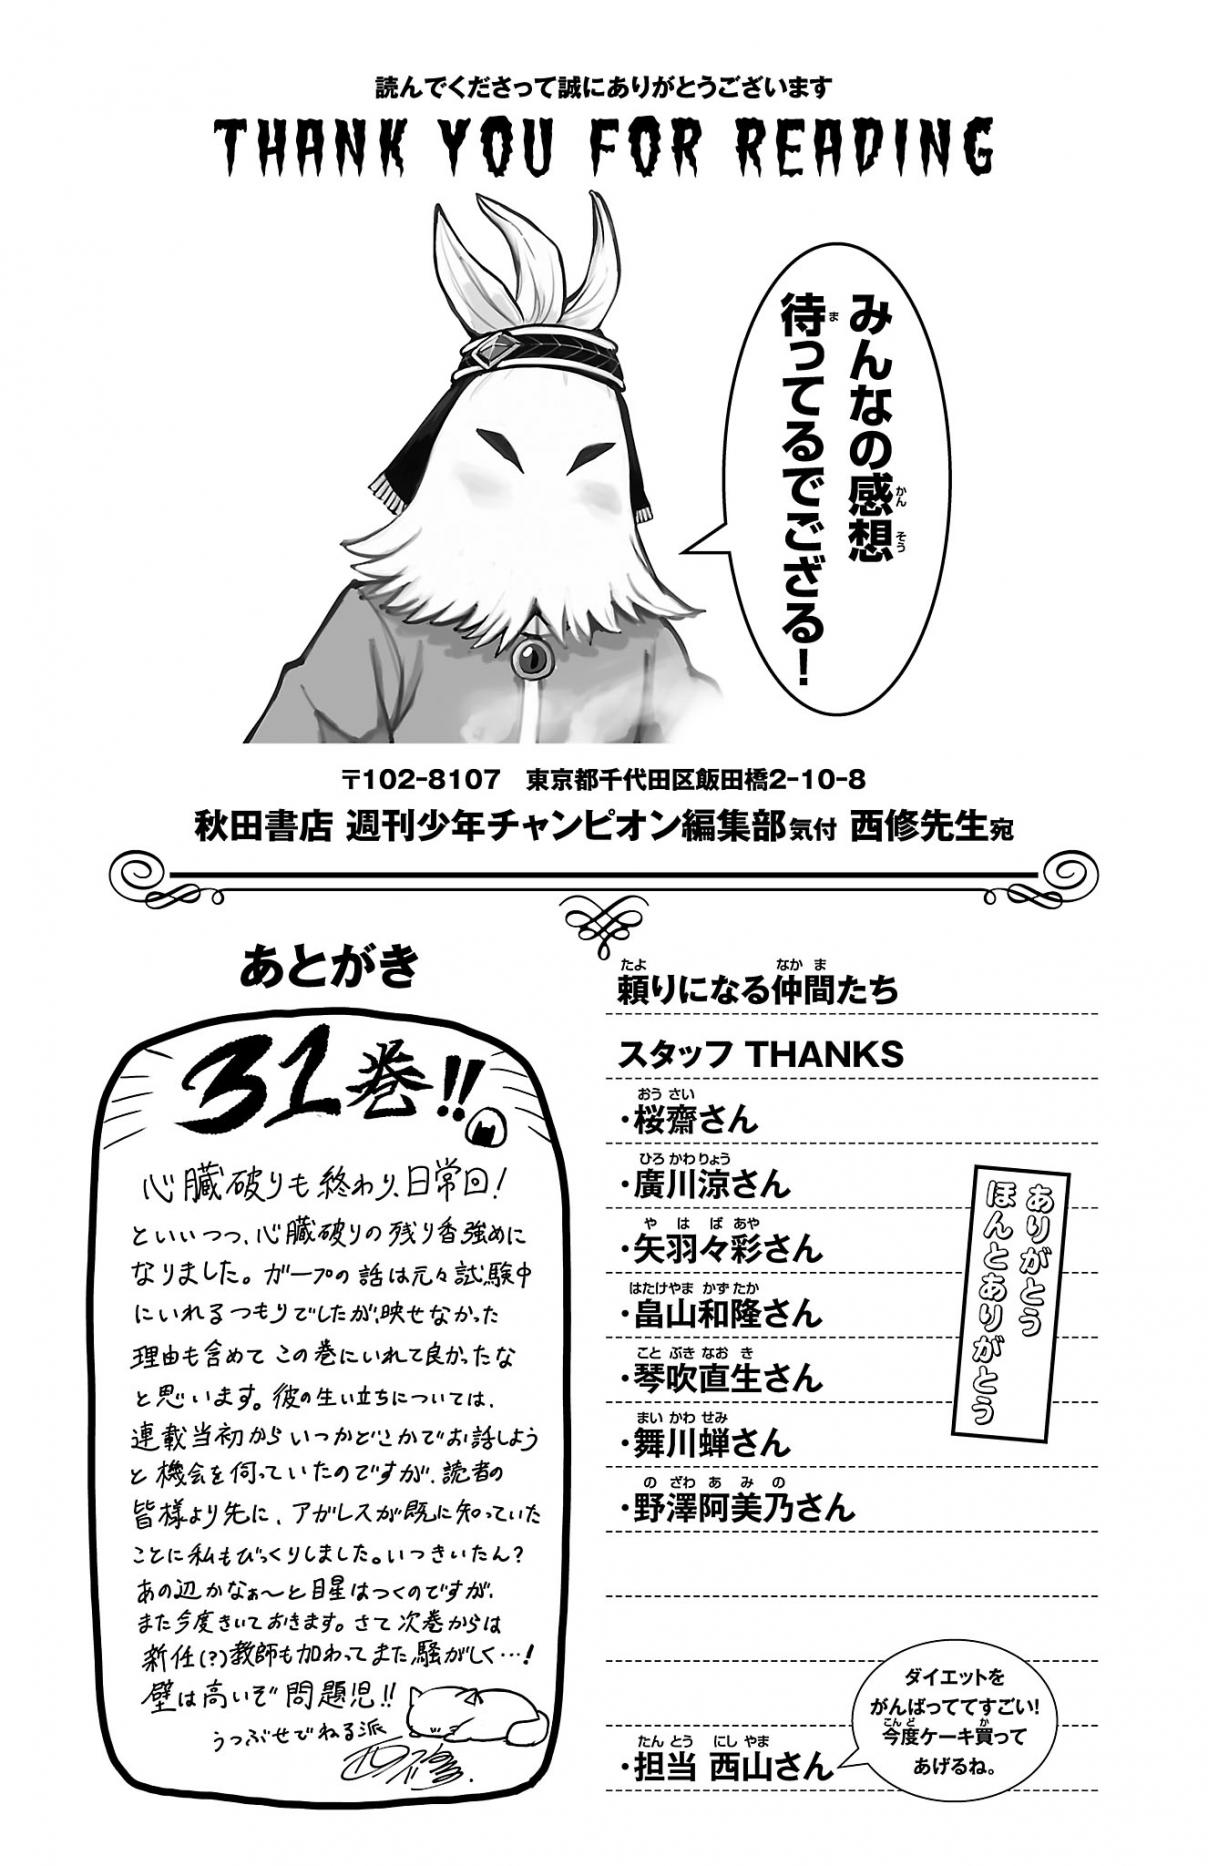 読んでくださって誠にありがとうございます
THANK YOU FOR READING
みんなの感想
待ってるでござる!
〒102-8107 東京都千代田区飯田橋2-10-8
秋田書店 週刊少年チャンピオン編集部気付 西修先生宛
あとがき
31巻!!
心臓破りも終わり、日常回!
といいつつ、心臓破りの残り香強めに
なりました。ガープの話は元々試験中
にいれるつもりでしたが、映せなかった
理由も含めてこの巻にいれて良かったな
と思います。彼の生い立ちについては、
連載当初からいつかどこかでお話しよう
と機会を伺っていたのですが、読者の
皆様より先に、アガレスが既に知っていた
ことに私もびっくりしました。いつきいたん?
あの辺かなぁ〜と目星はつくのですが、
また今度きいておきます。さて次巻からは
新任(?)教師も加わってまた騒がしく…!
壁は高いぞ問題児!!
うつぶせでねる派
西修.
頼りになる仲間たち
スタッフ THANKS
・桜齋さん
・廣川涼さん
・矢羽々彩さん
・畠山和隆さん
・琴吹直生さん
・舞川蝉さん
・野澤阿美乃さん
ありがとう
ほんとありがとう
・担当 西山さん
ダイエットを
がんばっててすごい!
今度ケーキ買って
あげるね。